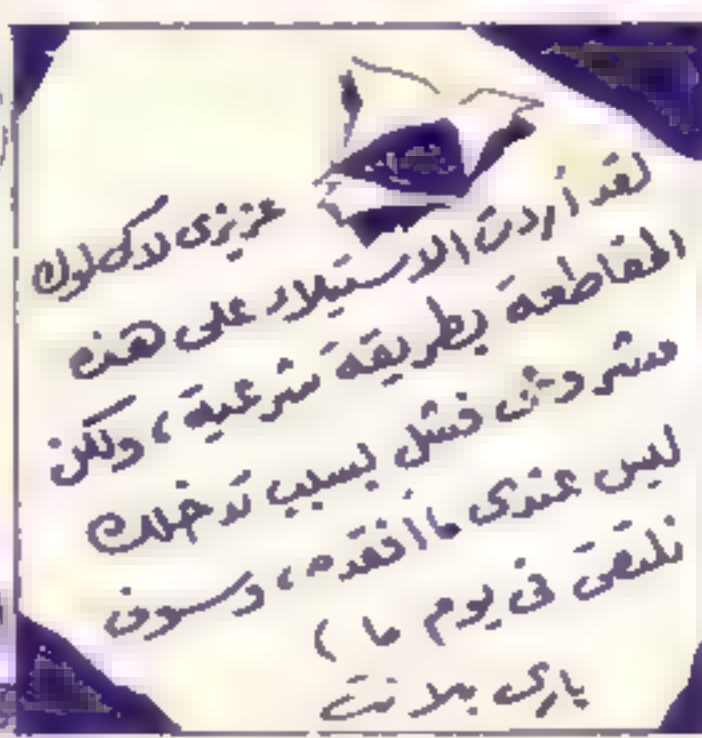 عزيزى لاكى لوك
لقد أردت الاستيلاء على هذه
المقاطعة بطريقة شرعية، ولكن
مشروعى فشل بسبب تدخلك
ليس عندى ما افقده، وسوف
نلتقى فى يوم ما)
بارى بلانت